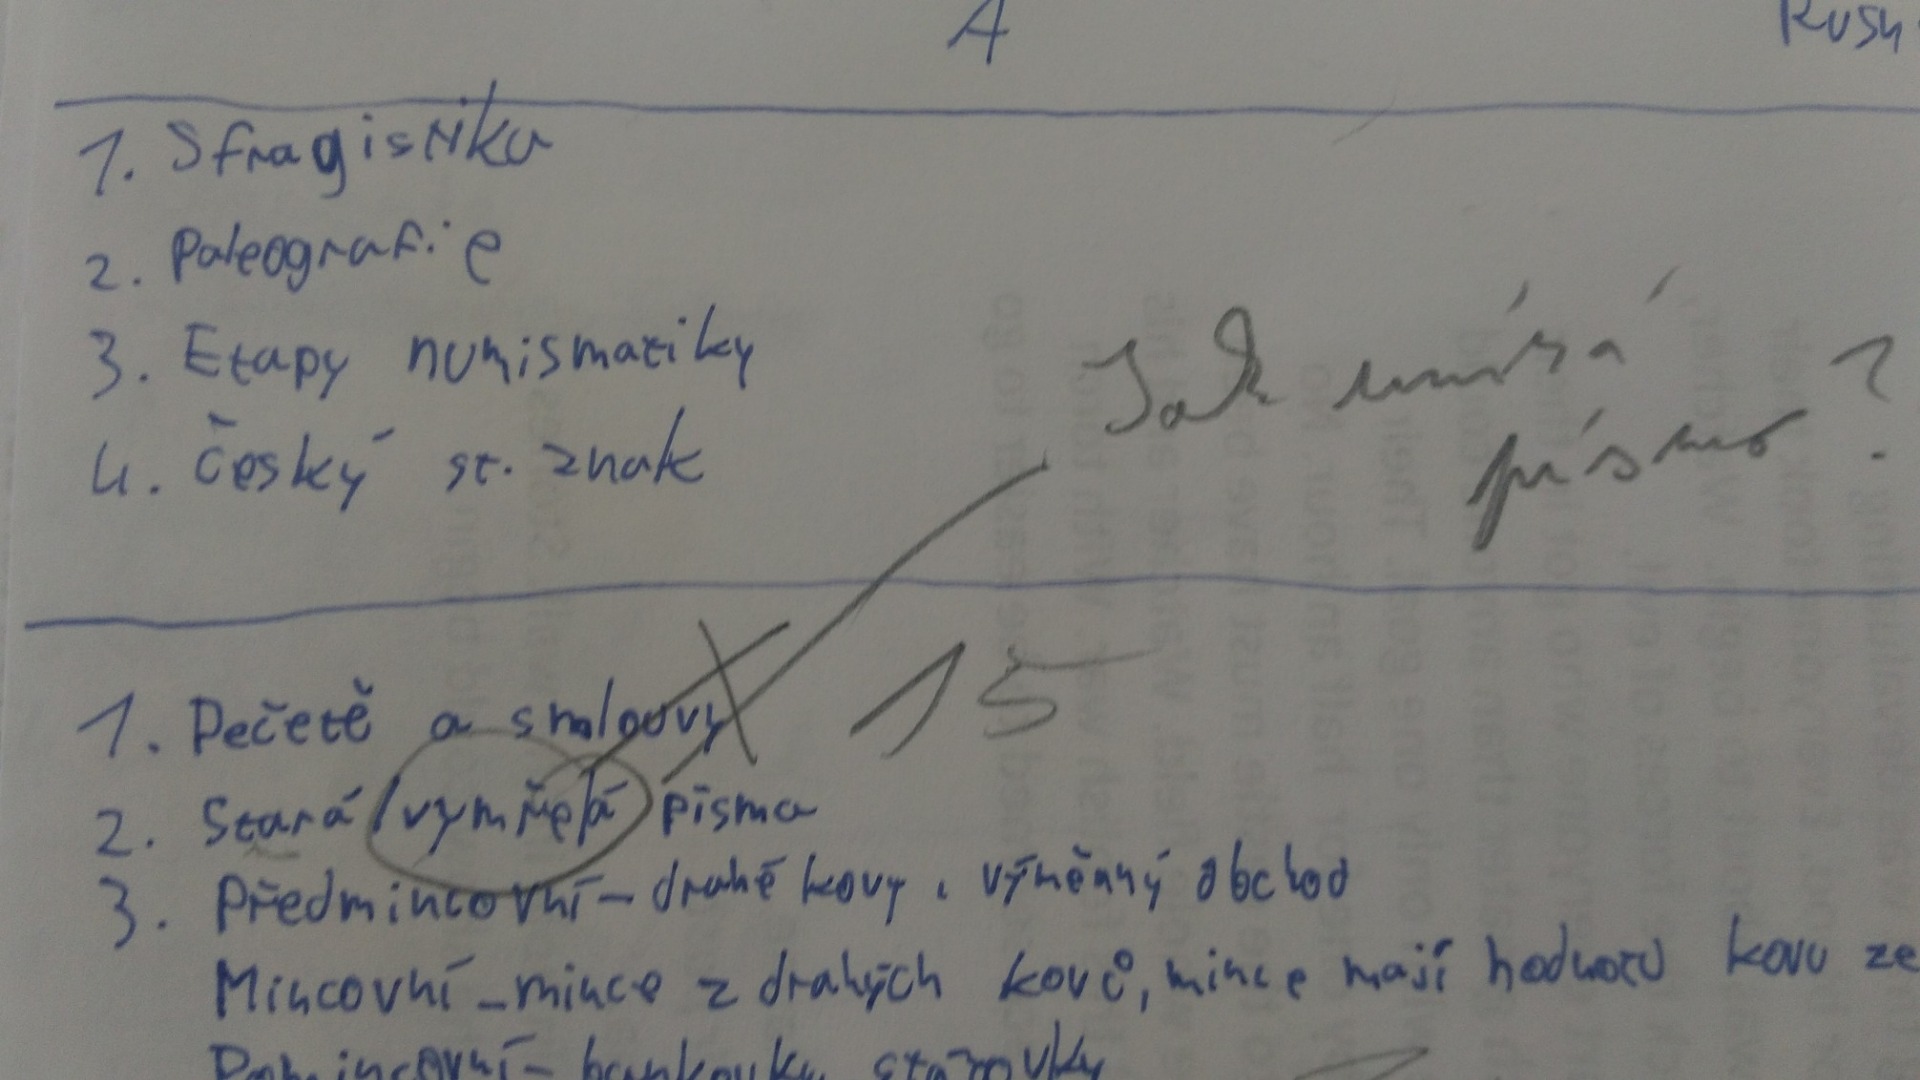 A
1. Sfragistika
2. Paleografie
3. Etapy numismatiky
4. Český st. znak
Jak umírá
písmo?
15
1. Pečetě a smlouvy
2. Stará/vymřelá písma
3. Předmincovní - drahé kovy, výměnný obchod
Mincovní - mince z drahých kovů, mince mají hodnotu kovu ze